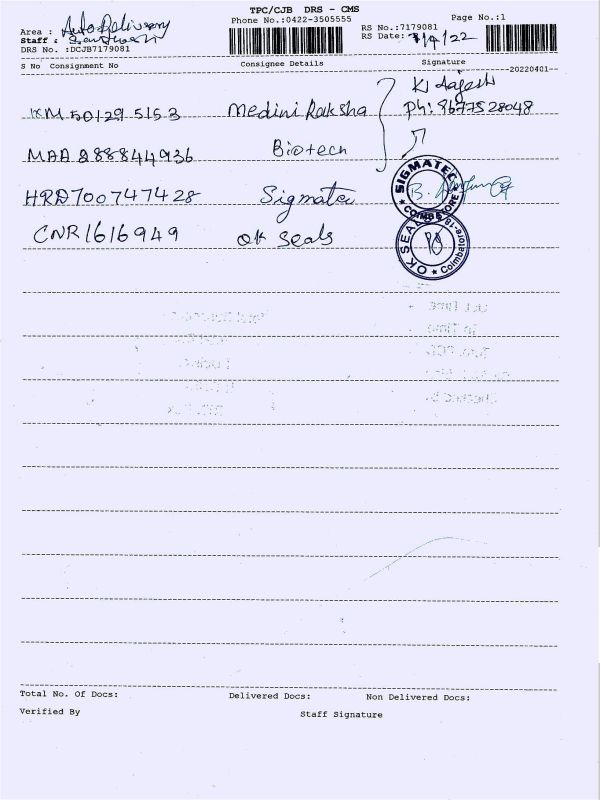 TPC/CJB DRS - CMS
Phone No.:0422-3505555
Page No.:1
Area : Auto Delivery
Staff :
DRS No. :DCJB7179081
RS No.:7179081
RS Date: 7/4/22
S No Consignment No Consignee Details Signature
--20220401--
KM 501295153 Medini Raksha K. Rajesh
Ph: 8677528048
MAA 288844936 Biotech
HRD700747428 Sigmatec
SIGMATEC
CNR1616949 OK Seals
OK SEAL
Coimbatore-18
Total No. Of Docs: Delivered Docs: Non Delivered Docs:
Verified By Staff Signature